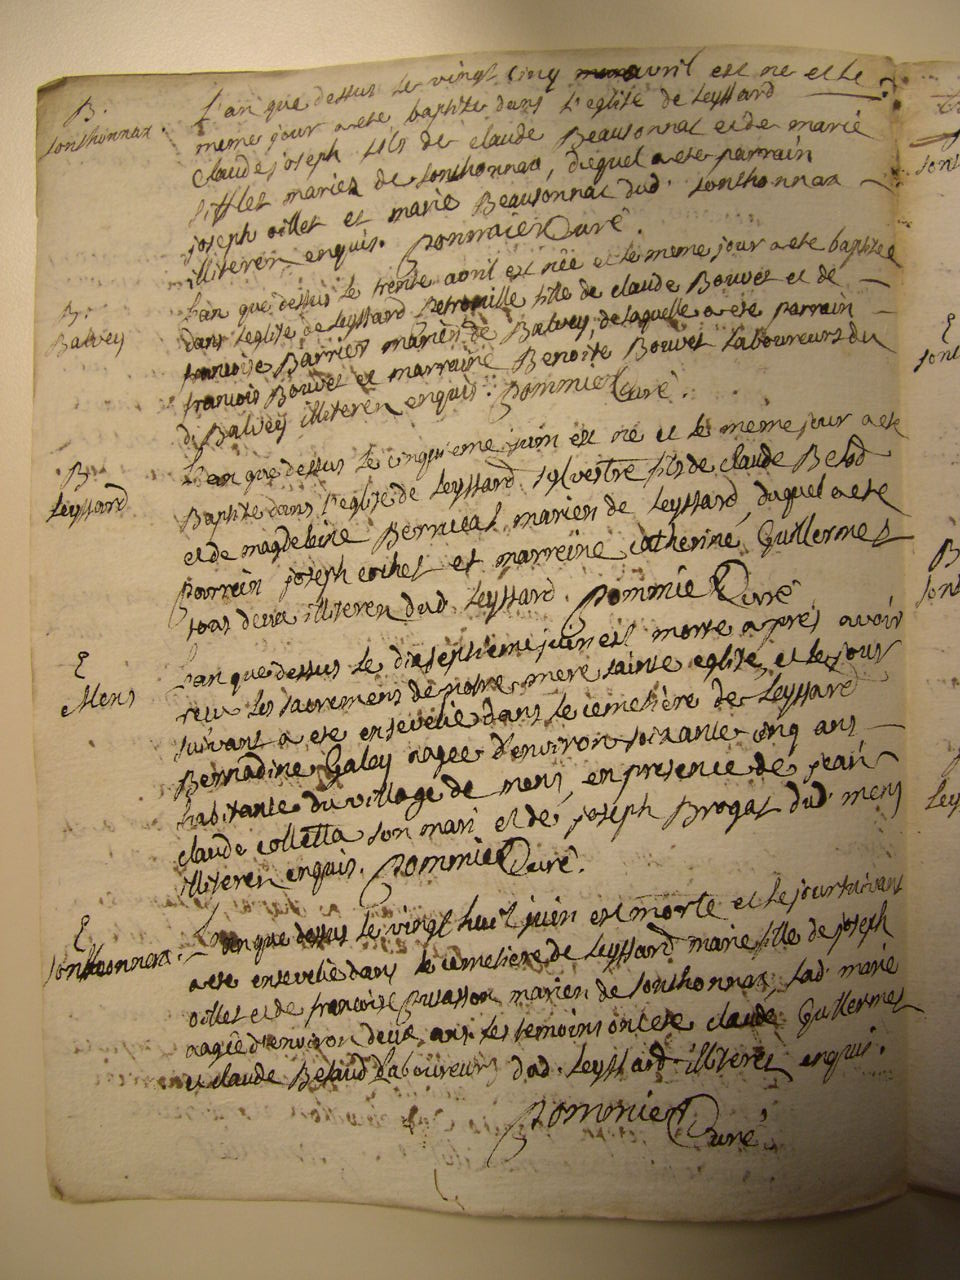 B.
sonthonnax.
L'an que dessus le vingt cinq avril est né et le
meme jour a ete baptise dans l'eglise de Leyssard
claude joseph fils de claude Beausonnat et de marie
sifflet mariez de sonthonnax, duquel a ete parrain
joseph oillet et marie Beausonnac dud. sonthonnax
illiterez enquis. pommier Curé.
B.
Balvey
L'an que dessus le trente avril est née et le meme jour a ete baptisée
dans l'eglise de Leyssard petronille fille de claude Bouvet et de
francoise Barrier mariez de Balvey, de laquelle a ete parrain
francois Bouvet et marraine Benoite Bouvet Laboureurs du
d. Balvey illiterez enquis. pommier Curé.
B.
Leyssard
L'an que dessus le cinquieme juin est né et le meme jour a ete
Baptise dans l'eglise de Leyssard sylvestre fils de claude Belod
et de magdeleine mariez de Leyssard, duquel a ete
parrain joseph cochet et marreine catherine Guillermet
tous deux illiterez dud. Leyssard. pommier Curé
E
Mens
L'an que dessus le dixseptieme juin est morte apres avoir
recu les sacremens de notre mere sainte eglise, et le jour
suivant a ete ensevelie dans le cemetière de Leyssard
Bernadine Galey aagee d'environ soixante cinq ans
habitante du village de mens, en presence de jean
claude colletta son mari et de joseph Brogat dud. mens
illiterez enquis. pommier Curé.
E
sonthonnax.
L'an que dessus le vingt huit juin est morte et le jour suivant
a ete ensevelie dans le cemetiere de Leyssard marie fille de joseph
oillet et de francoise mariez de sonthonnax, lad. marie
aagée d'environ deux ans. les temoins ont ete claude Guillermet
et claude Belaud Laboureurs dud. Leyssard illiterez enquis.
pommier
Curé.